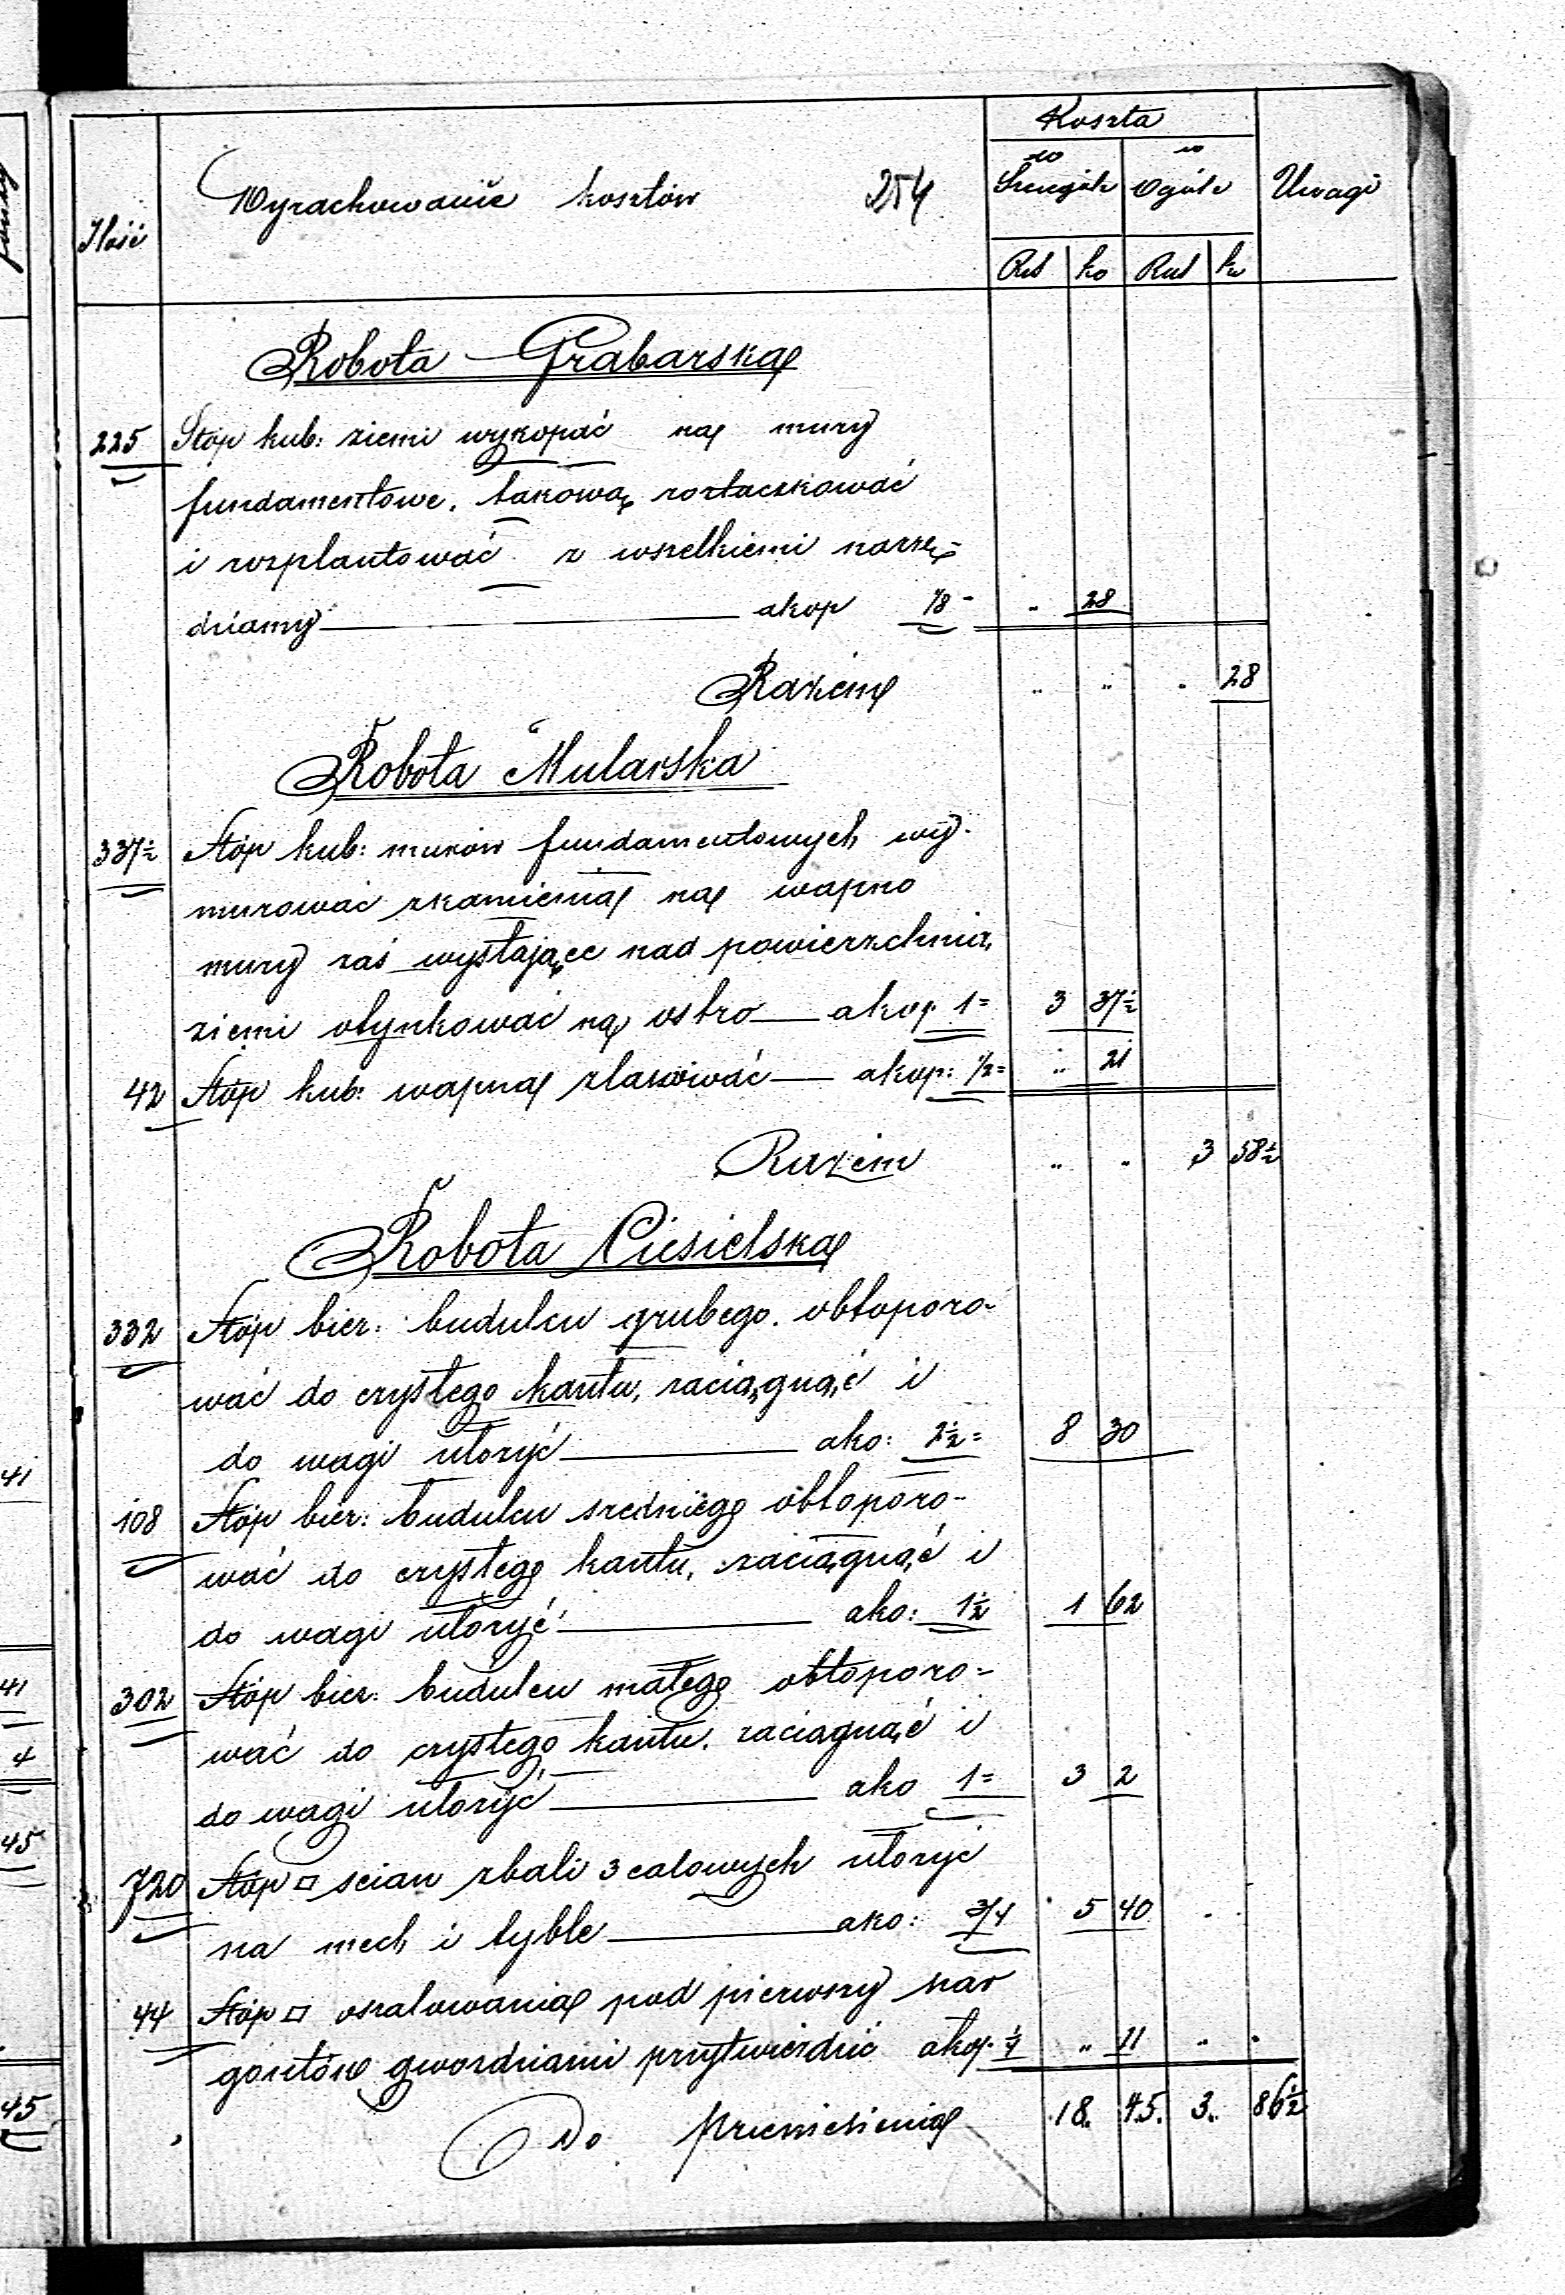 Koszta
Ilość Wyrachowanie kosztów 254 w Szczególe w Ogóle Uwagi
Rub ko Rub ko
Robota Grabarska
225 Stóp kub: ziemi wykopać na mury
fundamentowe, takową roztaczkować
i rozplantować z wszelkiemi narzę-
dziamy — akop 1/8 = " 28
Razem " " " 28
Robota Mularska
337½ Stóp kub: murów fundamentowych wy-
murować zkamienia na wapno
mury zaś wystające nad powierzchnią
ziemi otynkować na ostro — akop. 1= 3 37½
42 Stóp kub: wapna zlasować — akop: 1/2= " 21
Razem " " 3 58½
Robota Ciesielska
332 Stóp bier: budulcu grubego obtoporo-
wać do czystego kantu, zaciągnąć i
do wagi ułożyć — ako: 2½= 8 30
108 Stóp bier: budulcu sredniego obtoporo-
wać do czystego kantu, zaciągnąć i
do wagi ułożyć — ako: 1½ 1 62
302 Stóp bier: budulcu małego obtoporo-
wać do czystego kantu, zaciągnąć i
do wagi ułożyć — ako 1= 3 2
720 Stóp □ scian zbali 3 calowych ułożyć
na mech i tyble — ako: 3/4 5 40 " "
44 Stóp □ oszalowania pod pierwszy
gontów gwozdziami przytwierdzić akop. ¼ " 11 " "
Do przeniesienia 18. 45. 3. 86½
41
41
4
45
45